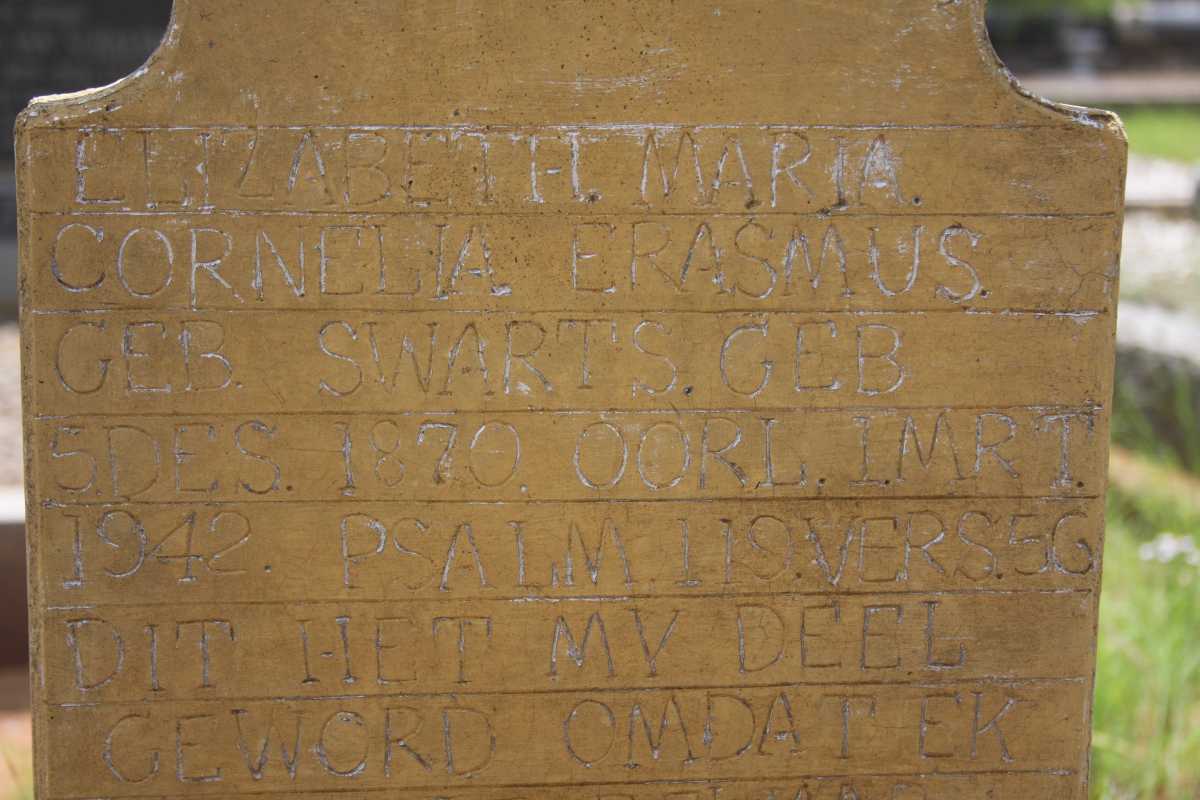 ELIZABETH. MARIA.
CORNELIA. ERASMUS.
GEB. SWARTS. GEB
5 DES. 1870. OORL. I. MRT.
1942. PSALM. 119. VERS. 56
DIT HET MY DEEL
GEWORD OMDAT EK